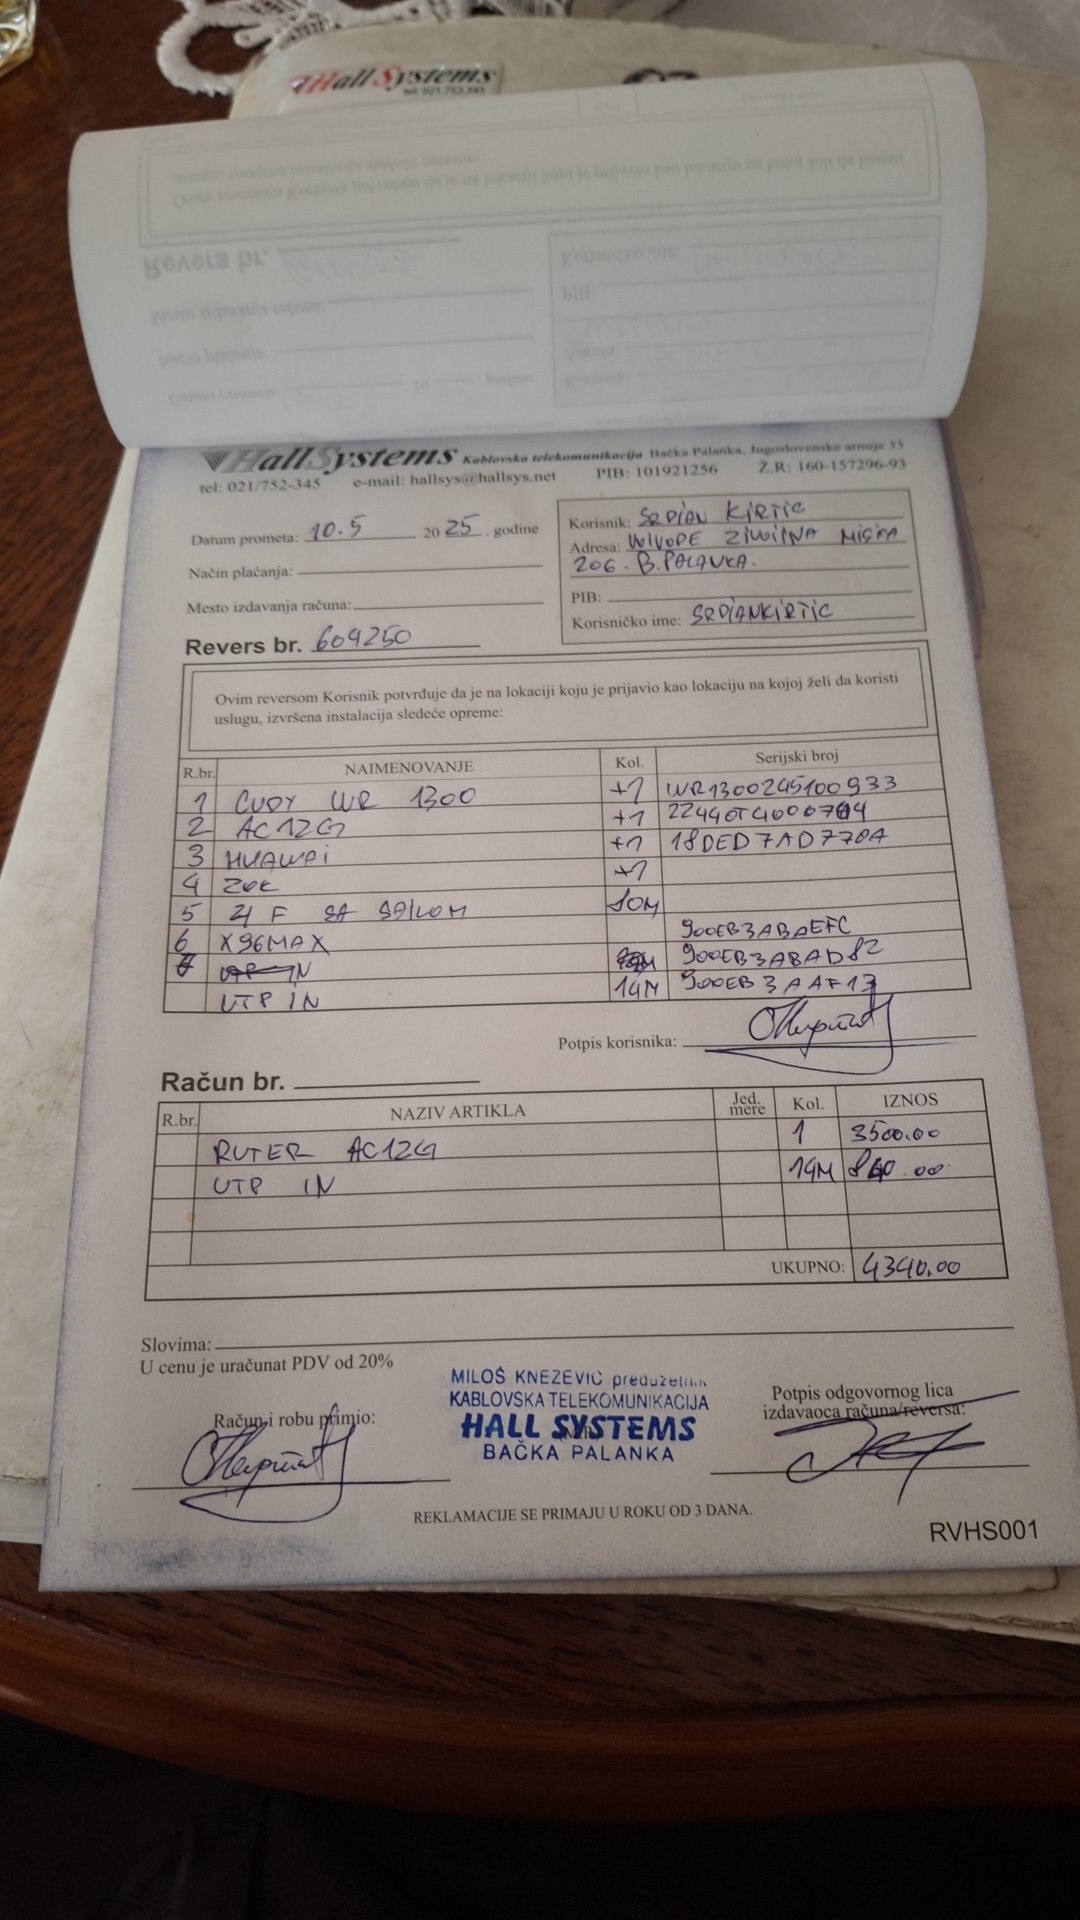 Hall Systems
tel: 021.752.345
HallSystems Kablovska telekomunikacija Bačka Palanka, Jugoslovenske armije 33
tel: 021/752-345 e-mail: hallsys@hallsys.net PIB: 101921256 Ž.R: 160-157296-93
Datum prometa: 10.5 2025. godine
Način plaćanja:
Mesto izdavanja računa:
Revers br. 609250
Korisnik: SRDJAN KIRTIC
Adresa: VOJVODE ZIVOJINA MISICA
206. B. PALANKA.
PIB:
Korisničko ime: SRDJANKIRTIC
Ovim reversom Korisnik potvrđuje da je na lokaciji koju je prijavio kao lokaciju na kojoj želi da koristi
uslugu, izvršena instalacija sledeće opreme:
R.br. NAIMENOVANJE Kol. Serijski broj
1 CUDY WR 1300 +1 WR1300245100933
2 AC12G +1
3 HUAWAI +1 18DED7AD770A
4 ZOK +1
5 2/F SA SAJLOM 80M
6 X96MAX 900EB3ABAEFC
7 900EB3ABAD82
UTP IN 14M 900EB3AAF13
Potpis korisnika:
Račun br.
R.br. NAZIV ARTIKLA Jed. mere Kol. IZNOS
RUTER AC12G 1 3500.00
UTP IN 14M 840.00
UKUPNO: 4340.00
Slovima:
U cenu je uračunat PDV od 20%
MILOŠ KNEŽEVIĆ preduzetnik
KABLOVSKA TELEKOMUNIKACIJA
HALL SYSTEMS
BAČKA PALANKA
Račun i robu primio:
Potpis odgovornog lica
izdavaoca računa/reversa:
REKLAMACIJE SE PRIMAJU U ROKU OD 3 DANA.
RVHS001